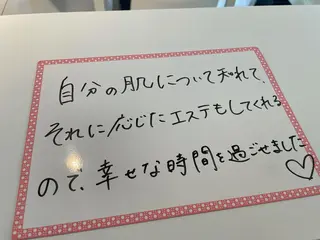 自分の肌について知れて、
それに応じたエステもしてくれる
ので、幸せな時間を過ごせました
♡